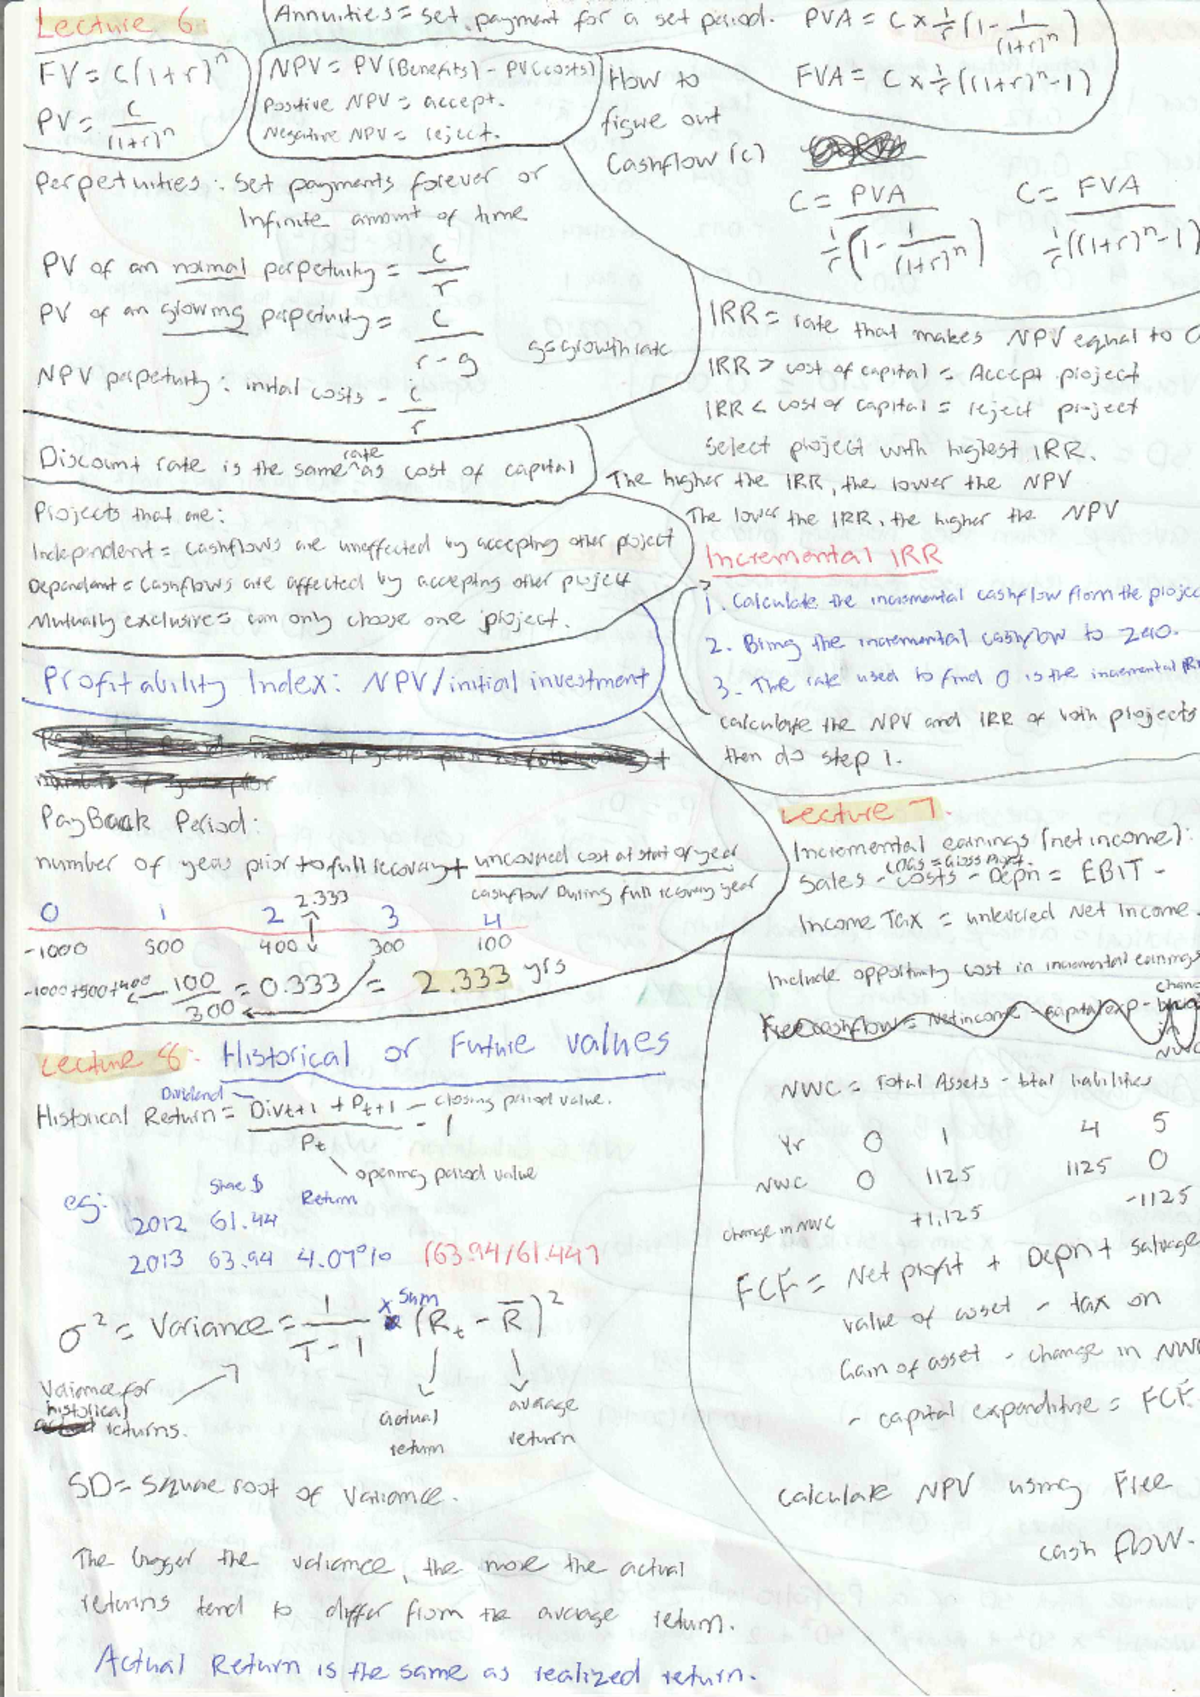 Lecture 6
Annuities = set payment for a set period. PVA = C × 1/r (1 - 1/(1+r)^n)
FVA = C × 1/r ((1+r)^n - 1)
FV = C(1+r)^n
PV = C/(1+r)^n
NPV = PV(Benefits) - PV(costs)
Positive NPV = accept.
Negative NPV = reject.
How to
figure out
Cashflow (c)
C = PVA / 1/r (1 - 1/(1+r)^n)
C = FVA / 1/r ((1+r)^n - 1)
Perpetuities: Set payments forever or
Infinite amount of time
PV of an normal perpetuity = C/r
PV of an growing perpetuity = C/r-g g=growth rate
NPV perpetuity: initial costs - C/r
Discount rate is the same rate as cost of capital
Projects that are:
Independent = cashflows are uneffected by accepting other project
Dependent = cashflows are affected by accepting other project
Mutually exclusive = can only choose one project.
Profitability Index: NPV/initial investment
IRR = rate that makes NPV equal to 0
IRR > cost of capital = Accept project
IRR < cost of capital = reject project
Select project with highest IRR.
The higher the IRR, the lower the NPV
The lower the IRR, the higher the NPV
Incremental IRR
1. Calculate the incremental cashflow from the projec
2. Bring the incremental cashflow to zero.
3. The rate used to find 0 is the incremental IRR
calculate the NPV and IRR of both projects
then do step 1.
PayBack Period:
number of years prior to full recovery + uncovered cost at start of year
cashflow During full recovery year
2.333
0 1 2 3 4
-1000 500 400 300 100
-1000+500+400 100/300 = 0.333 = 2.333 yrs
Lecture 7
Incremental earnings (net income):
Sales - costs - Depn = EBIT -
Income Tax = unlevered Net Income.
Include opportunity cost in incremental earnings
Free cashflow = Net income - capital exp - change
in
NWC
NWC = Total Assets - total liabilities
Yr 0 1 4 5
NWC 0 1125 1125 0
change in NWC +1,125 -1125
FCF = Net profit + Depn + Salvage
value of asset - tax on
Gain of asset - change in NWC
- capital expenditure = FCF
Calculate NPV using Free
cash flow.
Lecture 8: Historical or Future values
Historical Return = Dividend Div t+1 + P t+1 / Pt - 1 closing period value.
opening period value
eg: Share $ Return
2012 61.44
2013 63.94 4.07% (63.94/61.44)
σ² = Variance = 1/T-1 × Sum (Rt - R̄)²
Variance for
historical
returns.
actual
return
average
return
SD = Square root of Variance.
The bigger the variance, the more the actual
returns tend to differ from the average return.
Actual Return is the same as realized return.